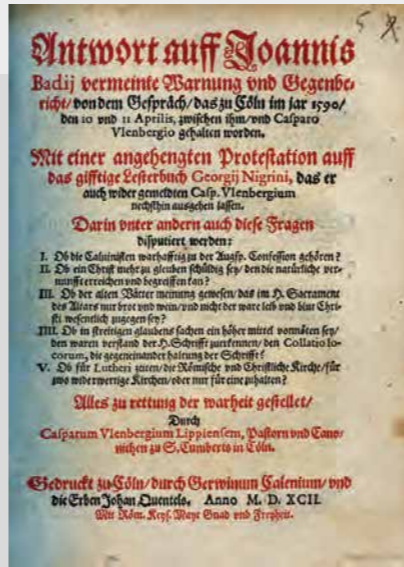 5
Antwort auff Joannis
Badij vermeinte Warnung vnd Gegenbe-
richt/ von dem Gespräch/ das zu Cöln im jar 1590/
den 10 vnd 11 Aprilis, zwischen ihm/ vnd Casparo
Vlenbergio gehalten worden.
Mit einer angehengten Protestation auff
das gifftige Lesterbuch Georgij Nigrini, das er
auch wider gemeldten Casp. Vlenbergium
nechsthin ausgehen lassen.
Darin vnter andern auch diese Fragen
disputiert werden:
I. Ob die Caluinisten warhafftig zu der Augsp. Confession gehören?
II. Ob ein Christ mehr zu gleuben schüldig sey/ den die natürliche ver-
nunfft erreichen vnd begreiffen kan?
III. Ob der alten Vätter meinung gewesen/ das im H. Sacrament
des Altars nur brot vnd wein/ vnd nicht der ware leib vnd blut Chri-
sti wesentlich zugegen sey?
IIII. Ob in streitigen glaubens sachen ein höher mittel vonnöten sey/
den waren verstand der H. Schrifft zuerkennen/ den Collatio lo-
corum, die gegeneinander haltung der Schrifft?
V. Ob für Lutheri zeiten/ die Römische vnd Christliche Kirche/ für
zwo widerwertige Kirchen/ oder nur für eine zuhalten?
Alles zu rettung der warheit gestellet/
Durch
Casparum Vlenbergium Lippiensem, Pastorn vnd Cano-
nichen zu S. Cuniberts in Cöln.
Gedruckt zu Cöln/ durch Gerwinum Calenium/ vnd
die Erben Johan Quentels. Anno M. D. XCII.
Mit Röm. Keys. Mayt Gnad vnd Freyheit.